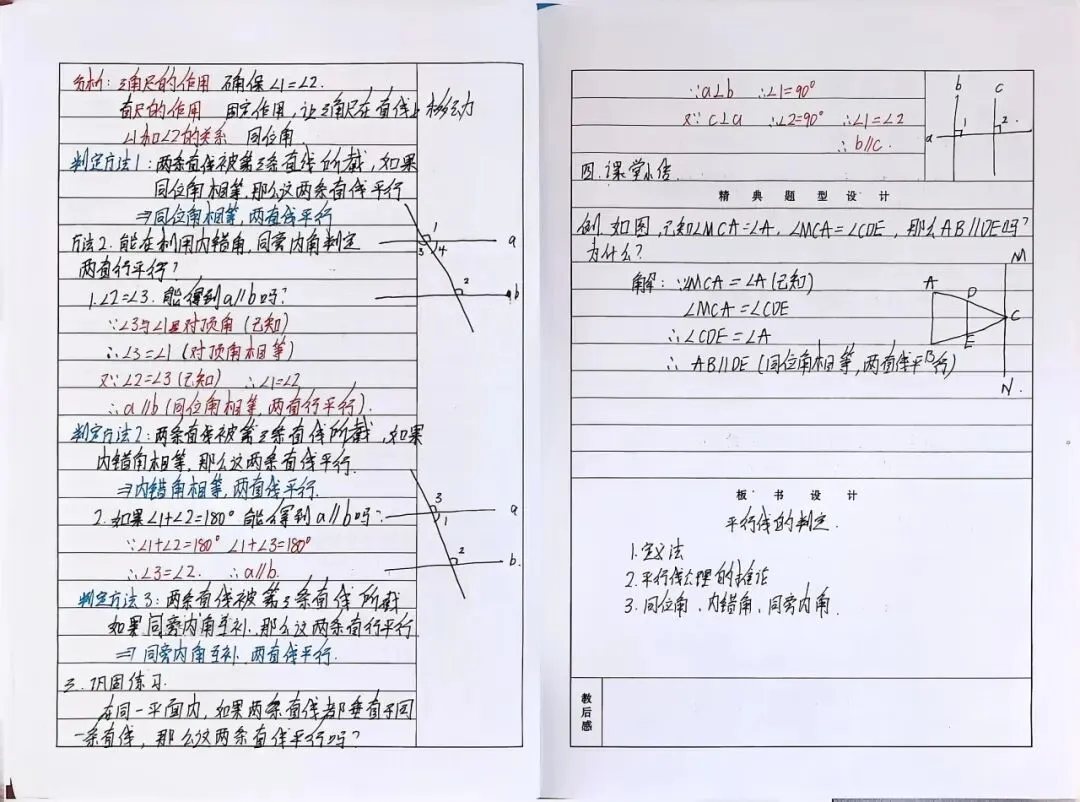 分析：三角尺的作用 确保∠1=∠2.
直尺的作用 固定作用，让三角尺在直线上移动
∠1和∠2的关系 同位角.
判定方法1：两条直线被第三条直线所截，如果
同位角相等，那么这两条直线平行
⇒同位角相等，两直线平行
方法2. 能在利用内错角，同旁内角判定
两直行平行？
1.∠2=∠3. 能得到a∥b吗？
∵∠3与∠1是对顶角（已知）
∴∠3=∠1（对顶角相等）
又∵∠2=∠3（已知） ∴∠1=∠2
∴a∥b（同位角相等，两直行平行）.
判定方法2：两条直线被第三条直线所截，如果
内错角相等，那么这两条直线平行.
⇒内错角相等，两直线平行.
2. 如果∠1+∠2=180° 能得到a∥b吗？
∵∠1+∠2=180° ∠1+∠3=180°
∴∠3=∠2. ∴a∥b.
判定方法3：两条直线被第三条直线所截
如果同旁内角互补，那么这两条直行平行
⇒同旁内角互补，两直线平行.
三．巩固练习.
在同一平面内，如果两条直线都垂直于同
一条直线，那么这两条直线平行吗？
1
a
3 4
2
b
3
a
1
2
b
∵a⊥b ∴∠1=90°
又∵c⊥a ∴∠2=90° ∴∠1=∠2
∴b∥c.
b c
a 1 2
四．课堂小结
精典题型设计
例．如图，已知∠MCA=∠A，∠MCA=∠CDE，那么AB∥DE吗？
为什么？
解：∵∠MCA=∠A（已知）
∠MCA=∠CDE
∴∠CDE=∠A
∴AB∥DE（同位角相等，两直线平行）
M
A D
C
E
B
N
板书设计
平行线的判定.
1. 定义法
2. 平行线公理的推论
3. 同位角、内错角、同旁内角.
教后感